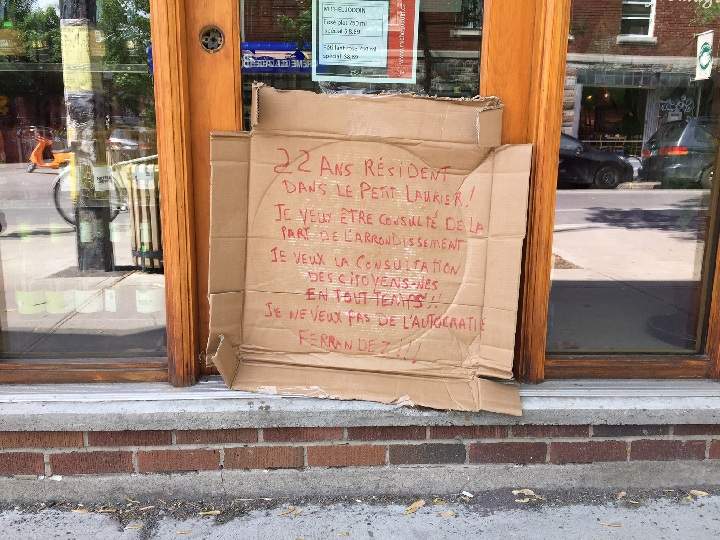 MICHEL JODOIN
Rosé plat 750 ml
spécial $ 8,69
22 ANS RÉSIDENT
DANS LE PETIT LAURIER!
JE VEUX ÊTRE CONSULTÉ DE LA
PART DE L'ARRONDISSEMENT
JE VEUX LA CONSULTATION
DES CITOYENS-NES
EN TOUT TEMPS!!
JE NE VEUX PAS DE L'AUTOCRATIE
FERRANDEZ!!!